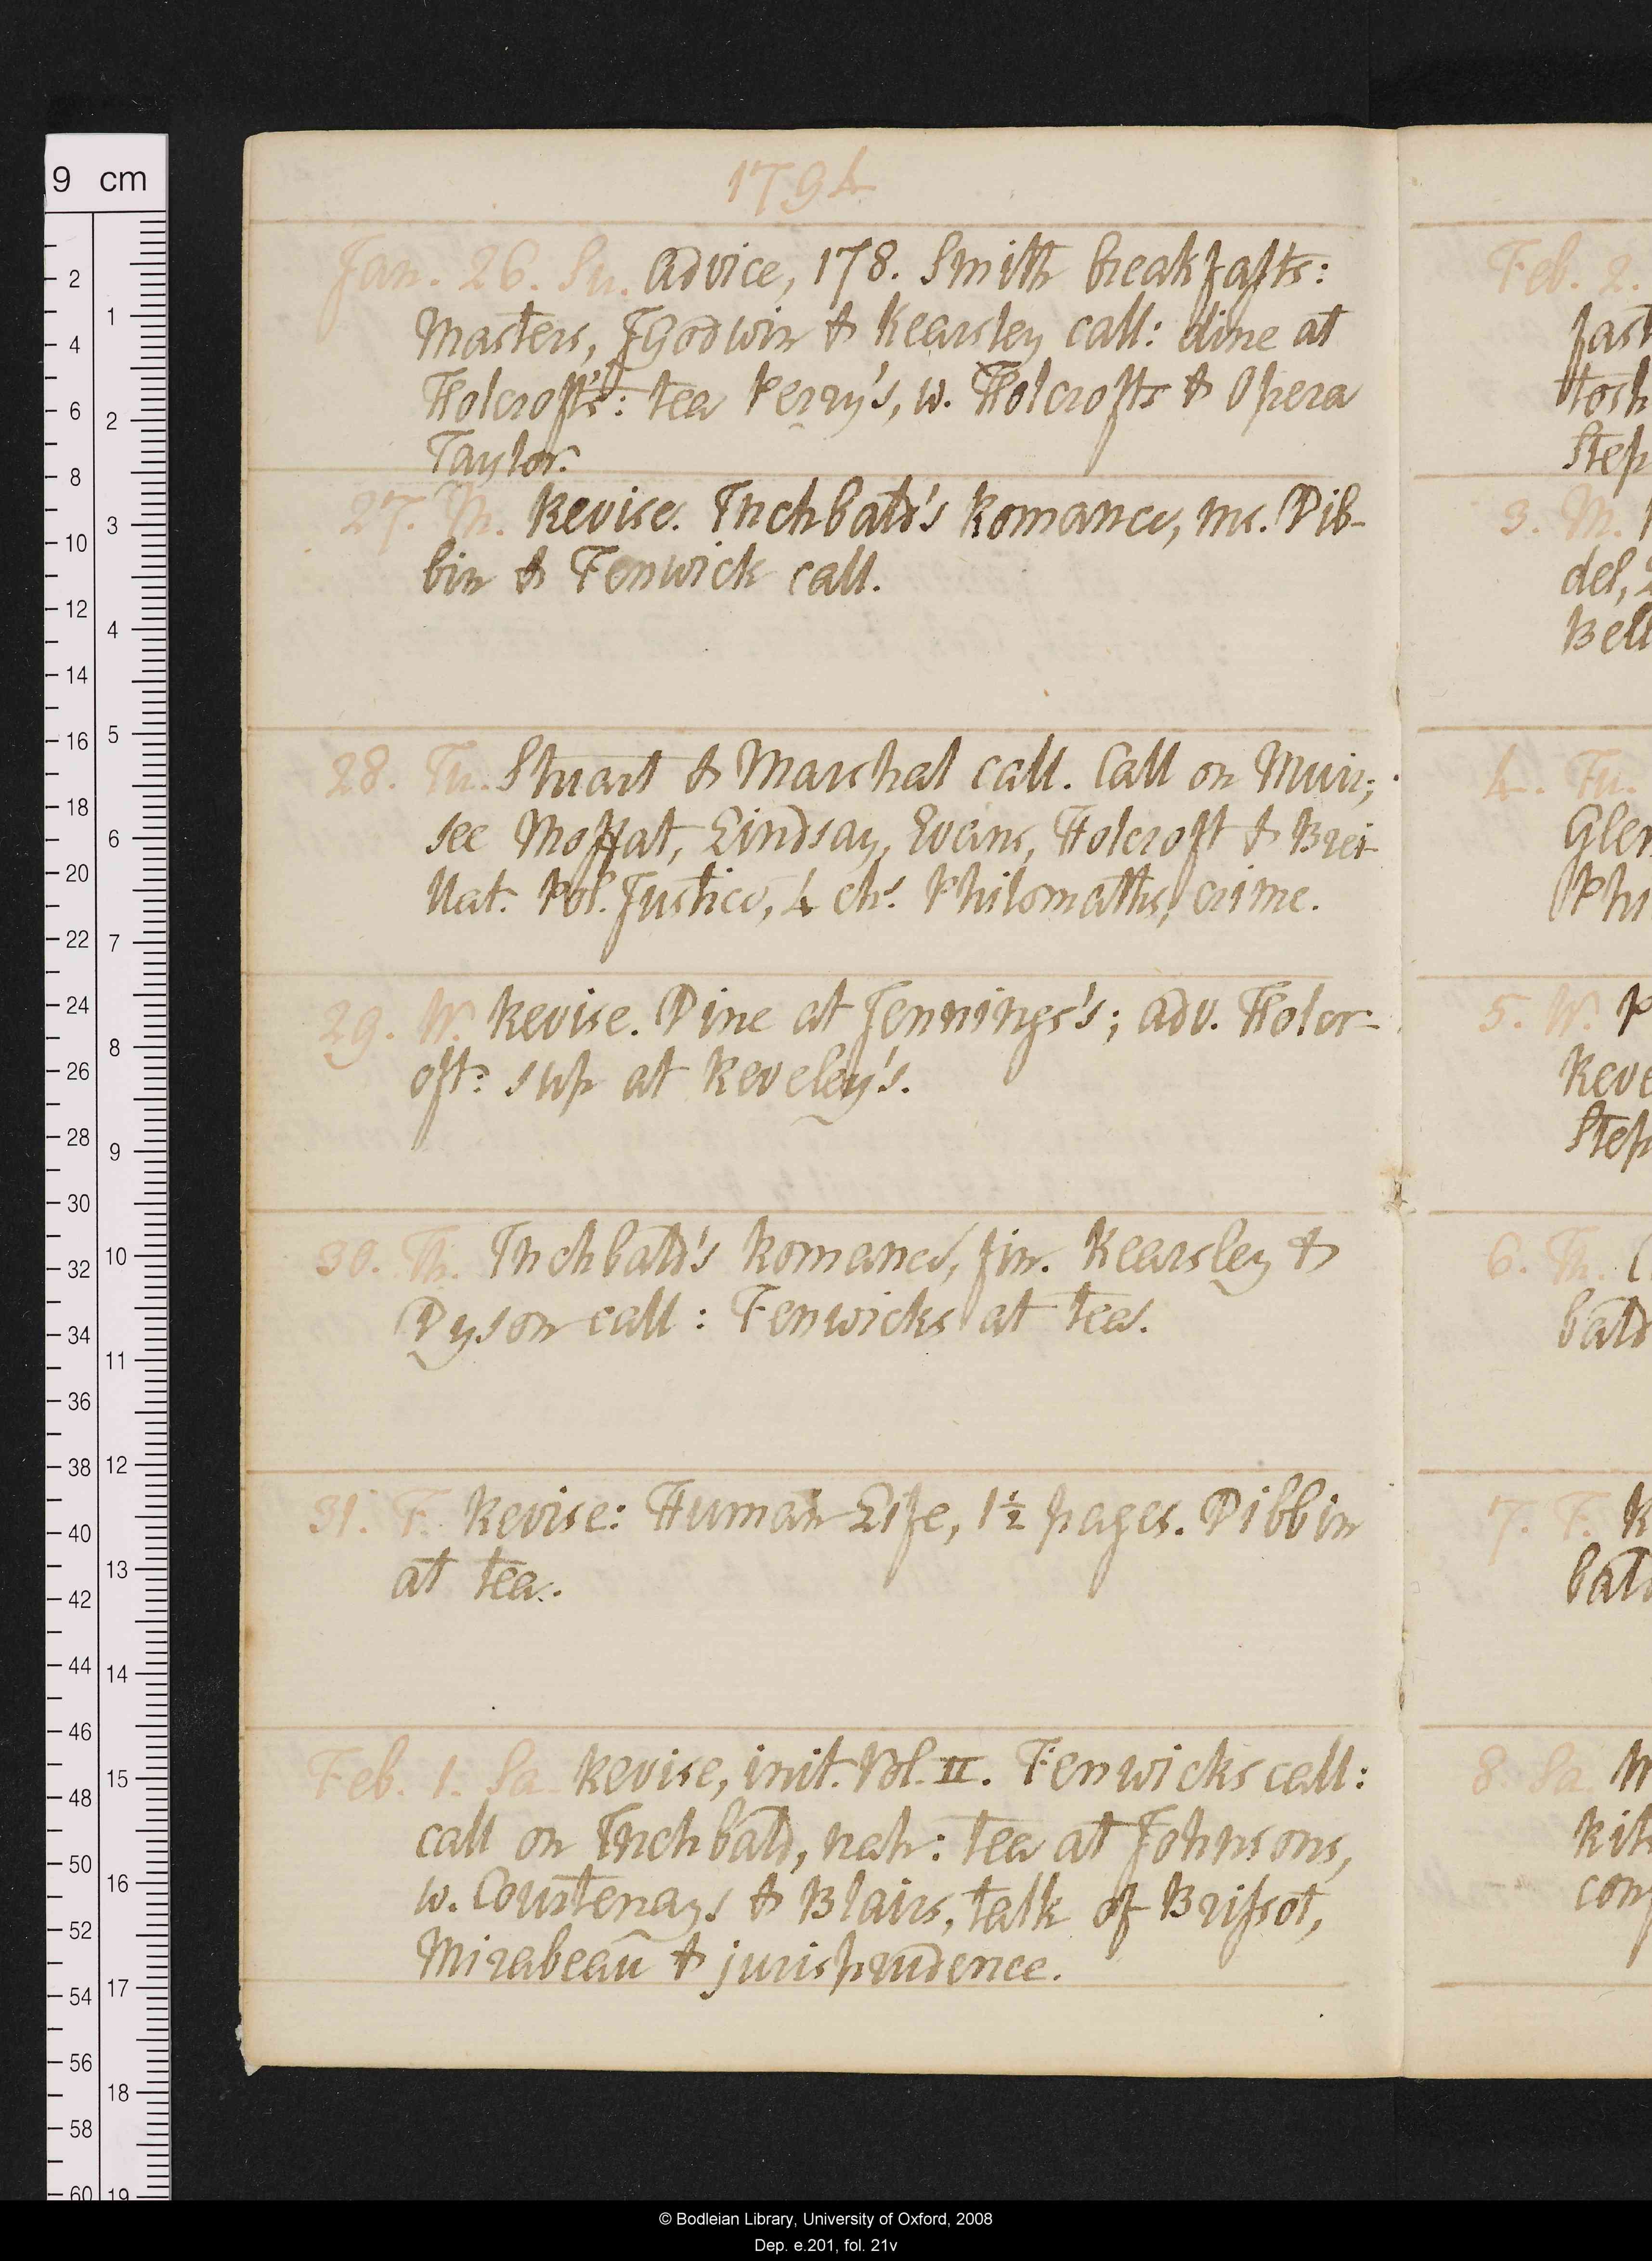 1794
Jan. 26. Su. Advice, 178. Smith breakfasts:
Masters, JGodwin & Kearsley call: dine at
Holcroft's: tea Perry's, w. Holcrofts & Opera
Taylor.
27. M. Revise. Inchbald's Romance, ms. Dib-
bin & Fenwick call.
28. Tu. Stuart & Marshal call. Call on Muir;
see Moffat, Lindsay, Evans, Holcroft & Brei
Nat. Pol. Justice, 4 chs. Philomaths, crime.
29. W. Revise. Dine at Jennings's; adv. Holcr-
oft: sup at Reveley's.
30. Th. Inchbald's Romance, fin. Kearsley &
Dyson call: Fenwicks at tea.
31. F. Revise: Human Life, 1½ pages. Dibbin
at tea.
Feb. 1. Sa. Revise, init. Vol. II. Fenwicks call:
call on Inchbald, nah: tea at Johnsons,
w. Courtenays & Blairs, talk of Brissot,
Mirabeau & jurisprudence.
Feb. 2.
fast
tosh
Step
3. M.
del,
Bell
4. Tu.
Glen
Phi
5. W.
Reve
Step
6. Th.
bald
7. F.
bald
8. Sa.
Rit
con
9 cm
2 4 6 8 10 12 14 16 18 20 22 24 26 28 30 32 34 36 38 40 42 44 46 48 50 52 54 56 58 60
1 2 3 4 5 6 7 8 9 10 11 12 13 14 15 16 17 18 19
© Bodleian Library, University of Oxford, 2008
Dep. e.201, fol. 21v